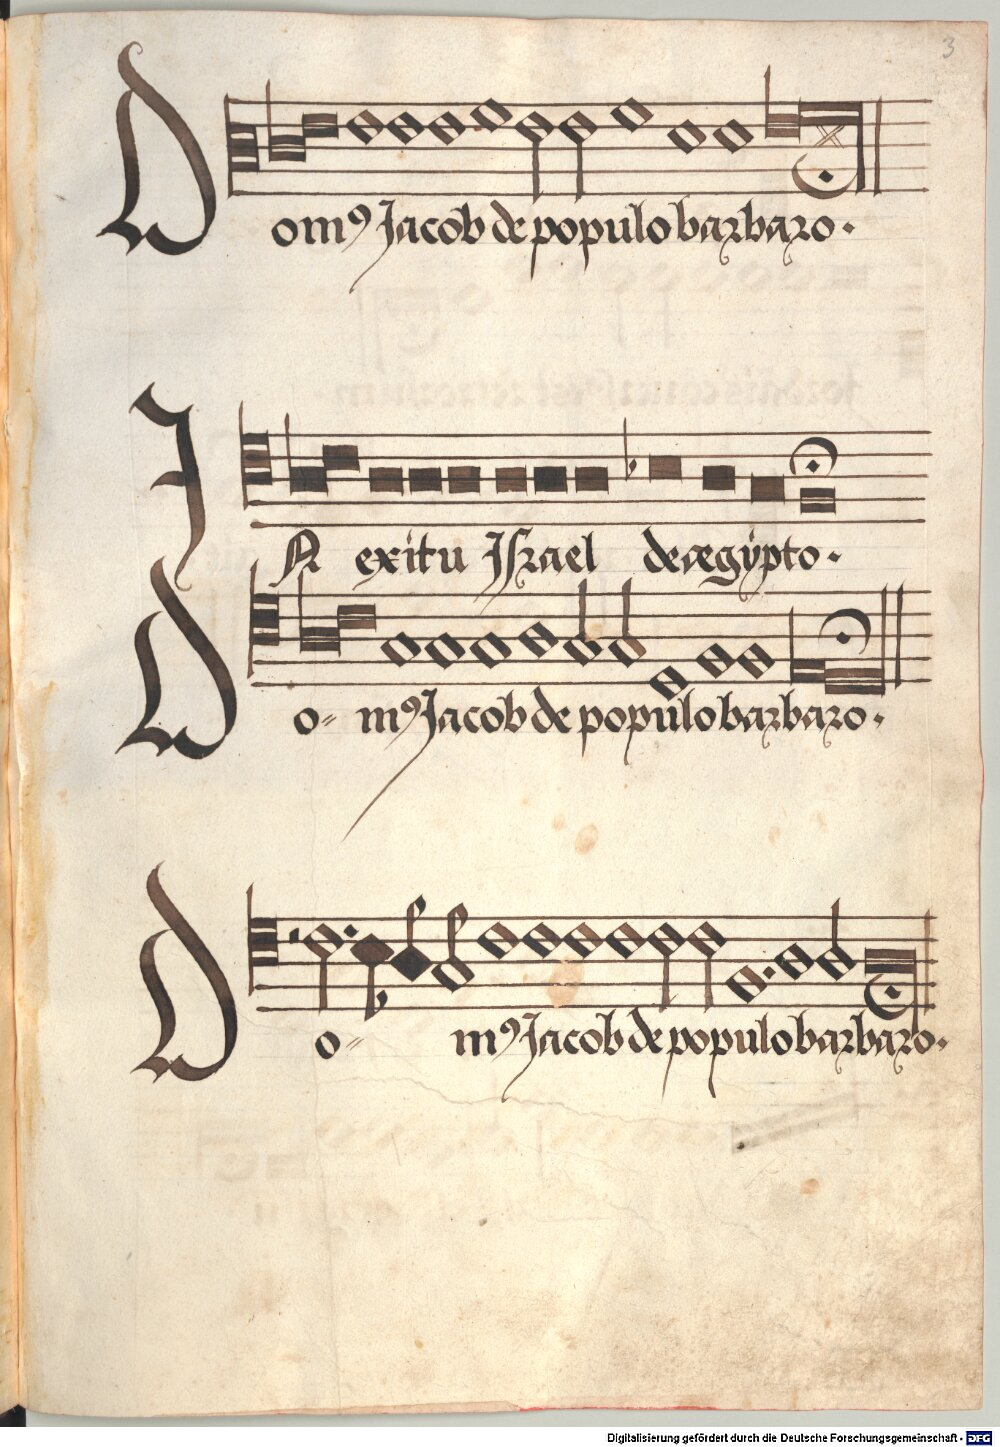 3
Domꝰ Jacob de populo barbaro.
IN exitu Israel de ægÿpto.
Do= mꝰ Jacob de populo barbaro.
Do= mꝰ Jacob de populo barbaro.
Digitalisierung gefördert durch die Deutsche Forschungsgemeinschaft - DFG